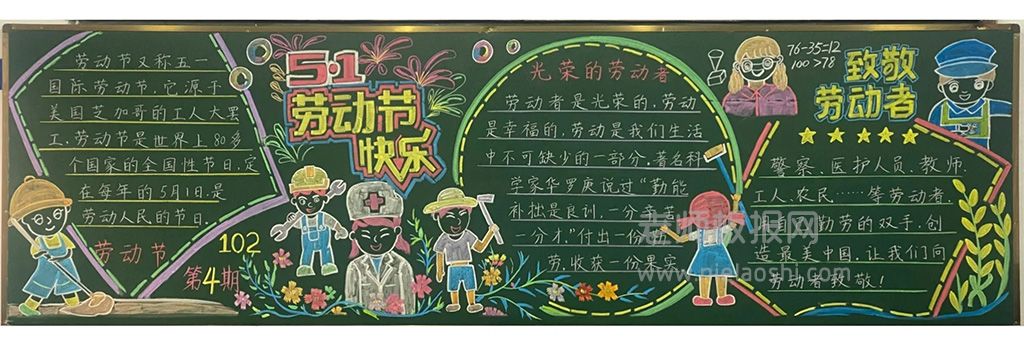 劳动节又称五一
国际劳动节.它源于
美国芝加哥的工人大罢
工.劳动节是世界上80多
个国家的全国性节日.定
在每年的5月1日.是
劳动人民的节日.
劳动节
102
第4期
5·1
劳动节
快乐
光荣的劳动者
劳动者是光荣的.劳动
是幸福的,劳动是我们生活
中不可缺少的一部分.著名科
学家华罗庚说过"勤能
补拙是良训.一分辛苦
一分才."付出一份
劳.收获一份果实
76-35=12
100>78
致敬
劳动者
警察、医护人员、教师、
工人、农民……等劳动者.
勤劳的双手,创
造最美中国.让我们向
劳动者致敬!
老师板报网
www.pielaoshi.com